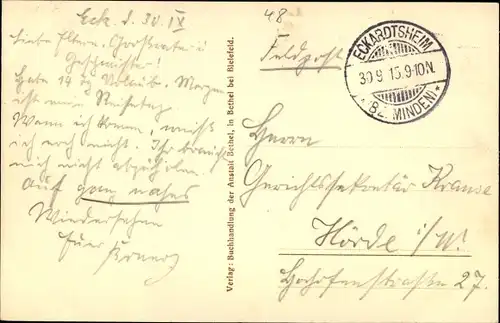 Eck. d. 30. IX
Liebe Eltern, Großvater u.
Geschwister!
Habe 14 Tg Urlaub. Morgen
ist mein Reisetag.
Wann ich komme, weiß
ich noch nicht. Ihr braucht
mich nicht abzuholen.
Auf ganz nahes
Wiedersehen
Euer
Verlag: Buchhandlung der Anstalt Bethel, in Bethel bei Bielefeld.
48
Feldpost
ECKARDTSHEIM
30.9.15.9-10N.
* (BZ. MINDEN) *
Herrn
Gerichtssekretär Krause
Hörde i/W.
Hochofenstraße 27.